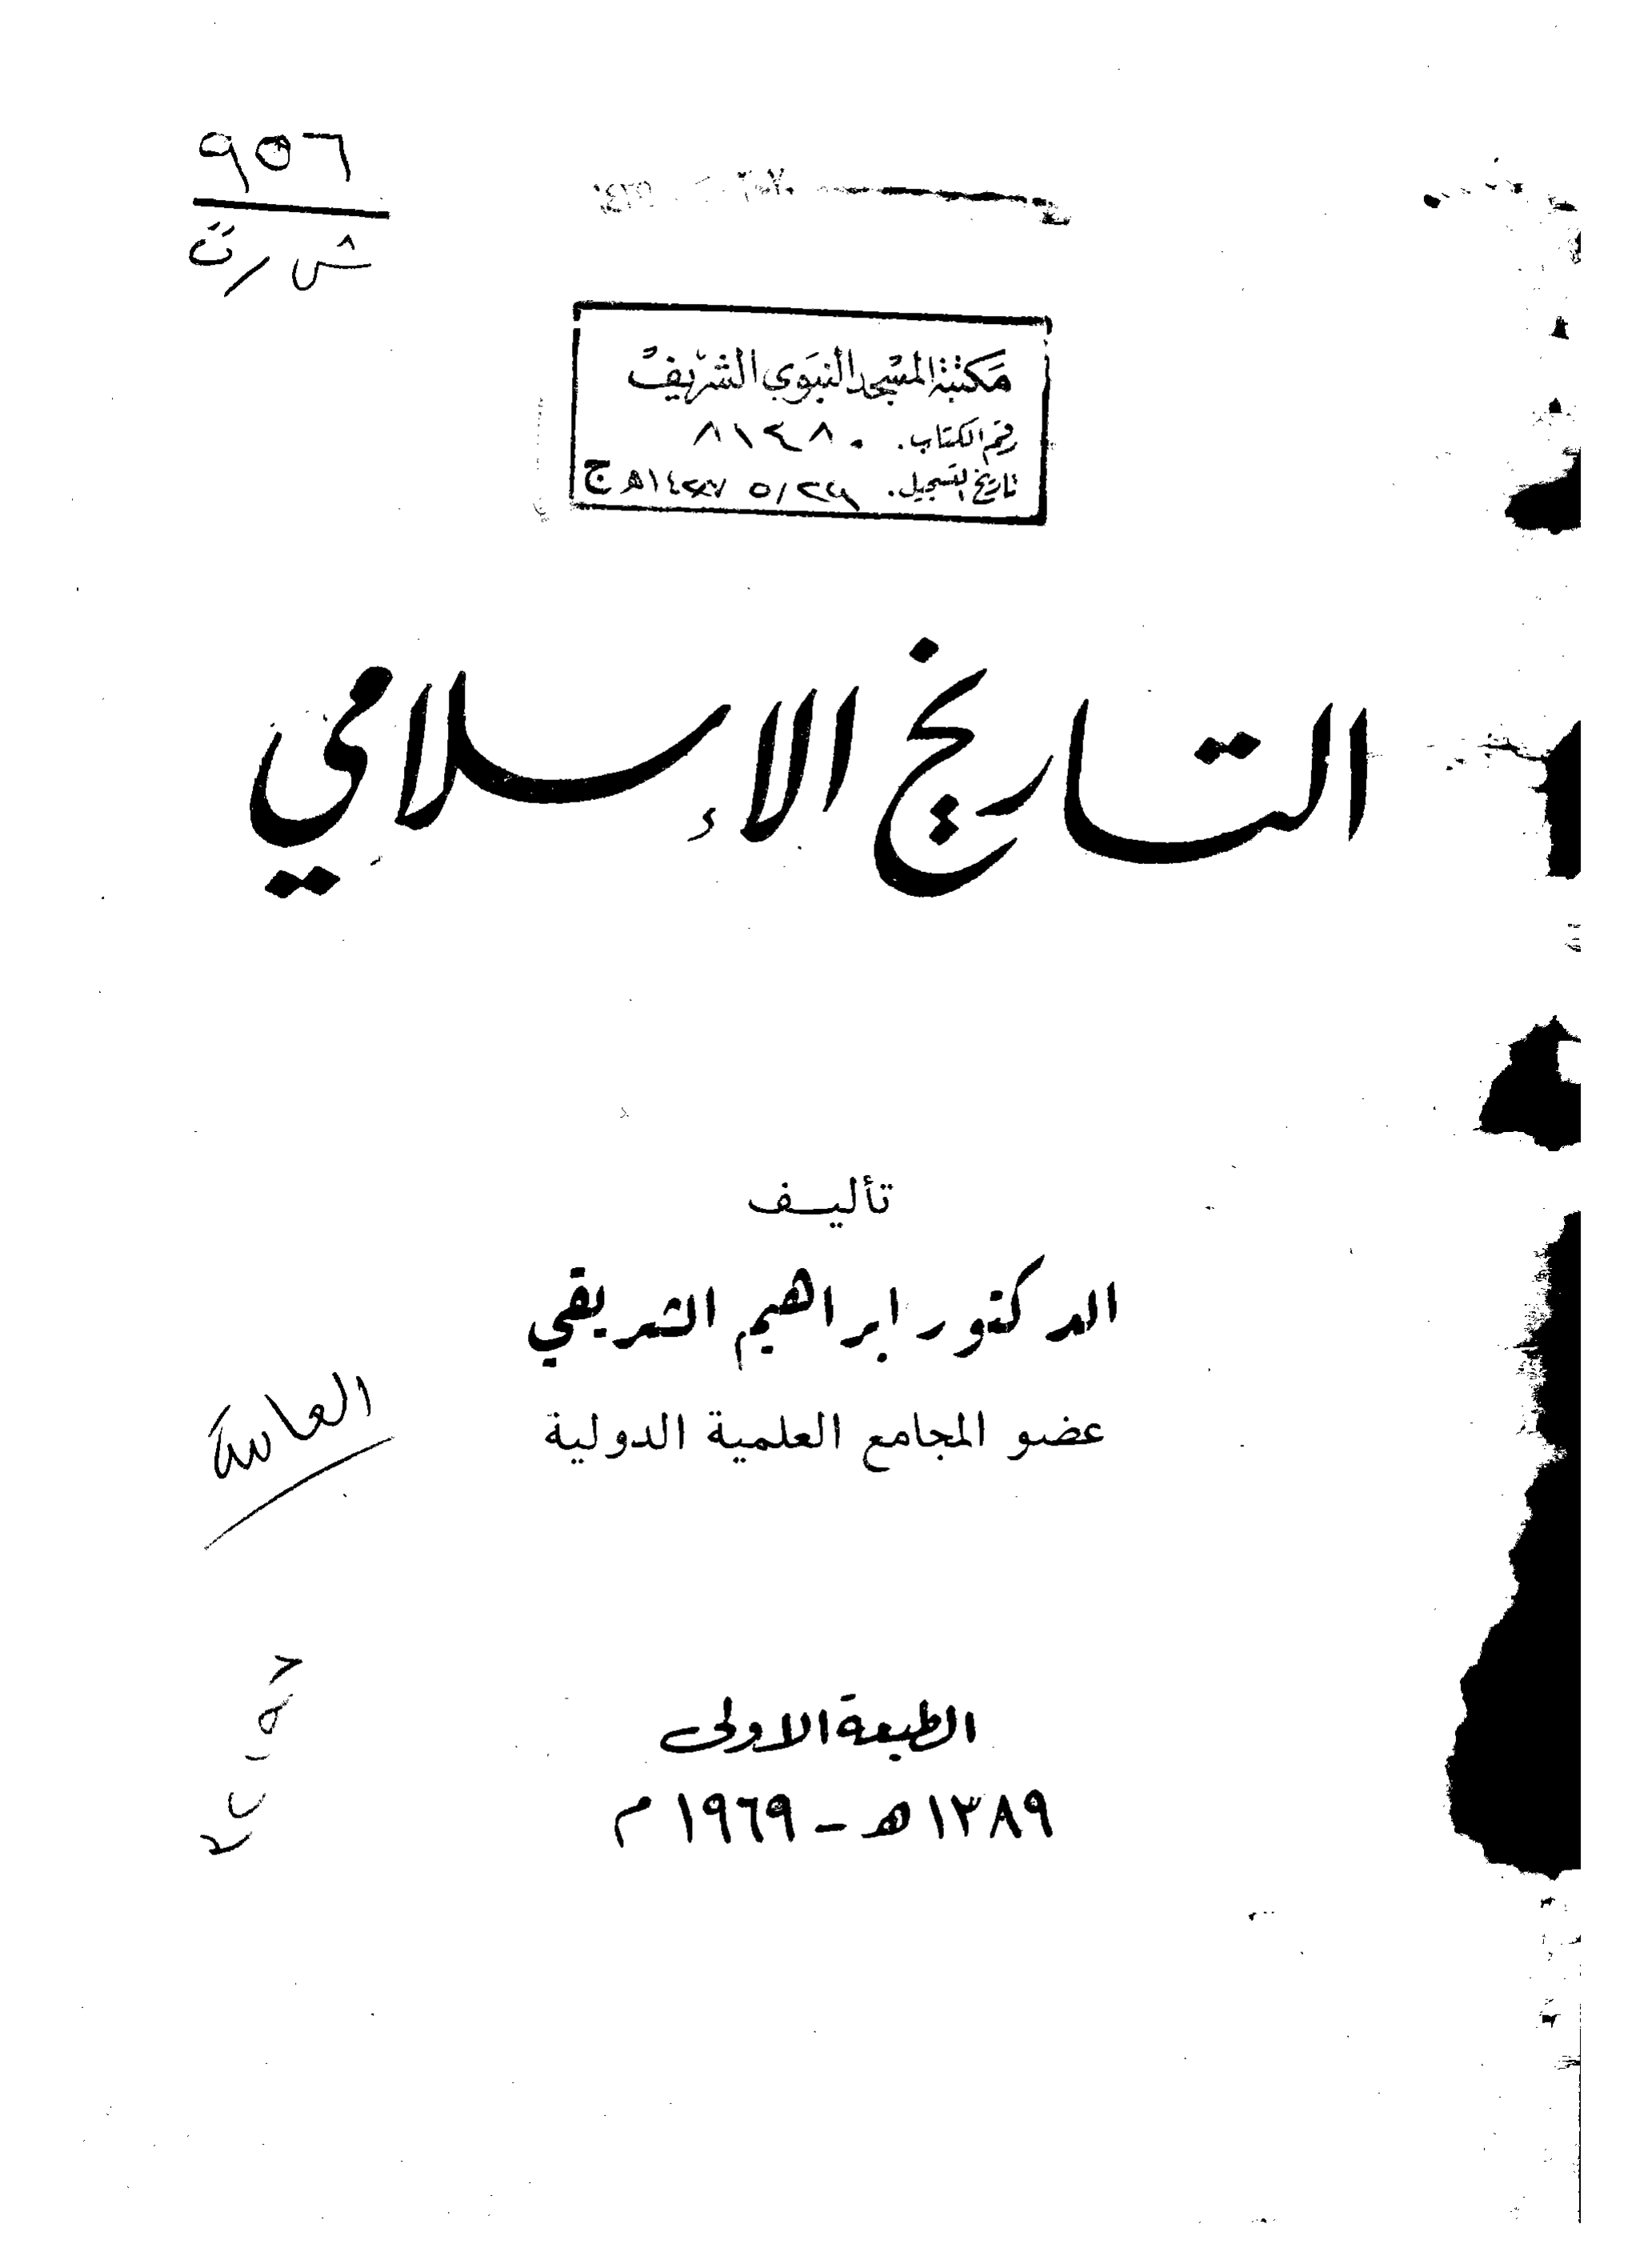 ٩٥٦
ش ر ت
مكتبة المسجد النبوي الشريف
رقم الكتاب. ٨١٤٨٠
تاريخ التسجيل. ٥/٢٩ ١٤٢٧هـ ج
التاريخ الإسلامي
تأليف
الدكتور ابراهيم الشريقي
عضو المجامع العلمية الدولية
العامة
الطبعة الاولى
١٣٨٩هـ - ١٩٦٩ م